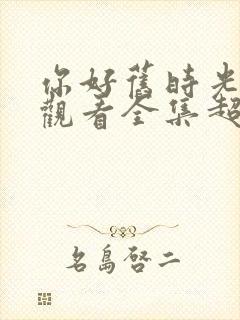 你好舊時光
觀看全集超
名島啓二